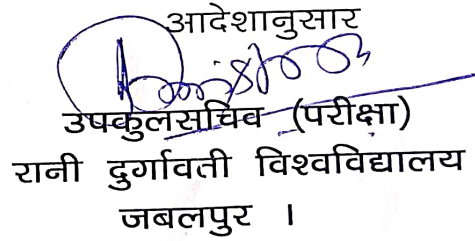 आदेशानुसार
उपकुलसचिव (परीक्षा)
रानी दुर्गावती विश्वविद्यालय
जबलपुर ।